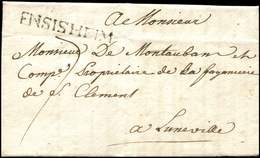 A Monsieur
ENSISHEIM
Monsieur De Montauban et
Comp.e Propriétaire de la fayancerie
de St Clement
a Luneville